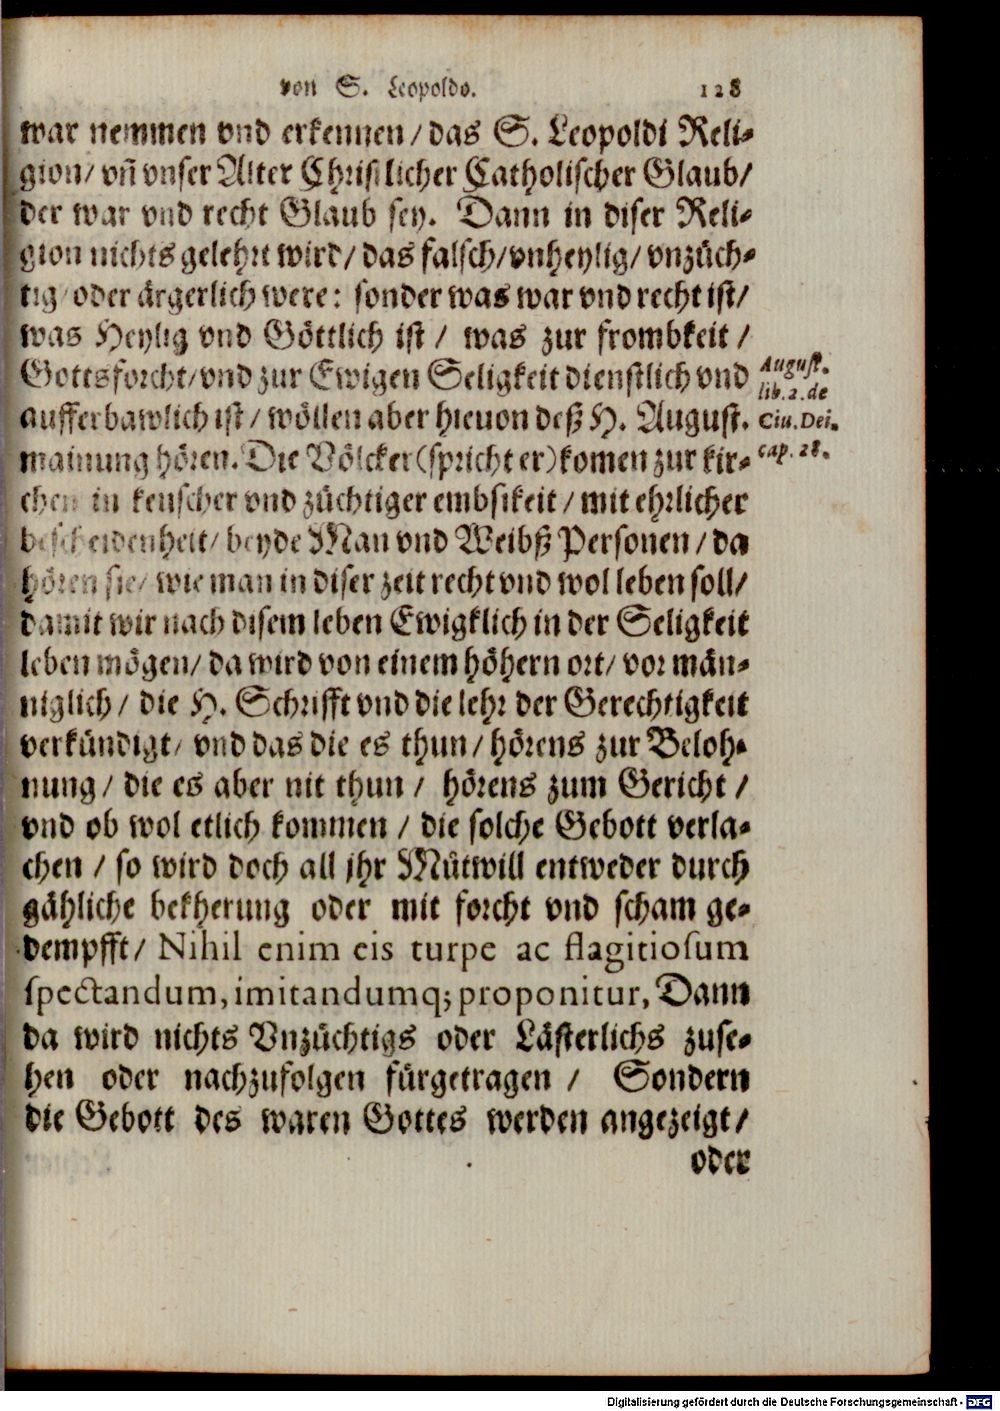 von S. Leopoldo. 128
war nemmen vnd erkennen / das S. Leopoldi Reli-
gion / vñ vnser Alter Christlicher Catholischer Glaub /
der war vnd recht Glaub sey. Dann in diser Reli-
gion nichts gelehrt wird / das falsch / vnheylig / vnzüch-
tig / oder ärgerlich were: sonder was war vnd recht ist /
was Heylig vnd Göttlich ist / was zur frombkeit /
Gottsforcht / vnd zur Ewigen Seligkeit dienstlich vnd
aufferbawlich ist / wöllen aber hieuon deß H. August.
mainung hören. Die Völcker (spricht er) komen zur kir-
chen in keuscher vnd züchtiger embsikeit / mit ehrlicher
bescheidenheit / beyde Man vnd Weibß Personen / da
hören sie / wie man in diser zeit recht vnd wol leben soll /
damit wir nach disem leben Ewigklich in der Seligkeit
leben mögen / da wird von einem höhern ort / vor män-
niglich / die H. Schrifft vnd die lehr der Gerechtigkeit
verkündigt / vnd das die es thun / hörens zur Beloh-
nung / die es aber nit thun / hörens zum Gericht /
vnd ob wol etlich kommen / die solche Gebott verla-
chen / so wird doch all jhr Mütwill entweder durch
gähliche bekherung oder mit forcht vnd scham ge-
dempfft / Nihil enim eis turpe ac flagitiosum
spectandum, imitandumq; proponitur, Dann
da wird nichts Vnzüchtigs oder Lästerlichs zuse-
hen oder nachzufolgen fürgetragen / Sondern
die Gebott des waren Gottes werden angezeigt /
oder
August.
lib. 2. de
Ciu. Dei.
cap. 28.
Digitalisierung gefördert durch die Deutsche Forschungsgemeinschaft - DFG